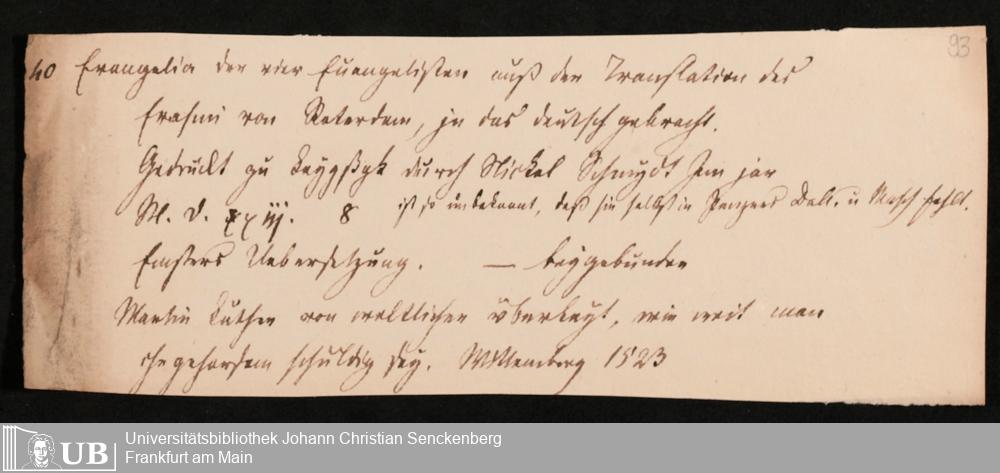 93
40 Evangelia der vier Euangelisten auß der Translation des
Erasmi von Roterdam, jn das deutsch gebracht.
Gedruckt zu Leygßgk durch Nickel Schmydt Jm jar
M. d. xxiij. 8 ist so unbekannt, daß sie selbst in Panzers Dall. u Masch fehlt.
Emsers Uebersetzung. — beygebunden
Martin Luther von welltlicher vberkeyt, wie weit man
yhr gehorsam schuldig sey. Wittemberg 1523
UB
Universitätsbibliothek Johann Christian Senckenberg
Frankfurt am Main